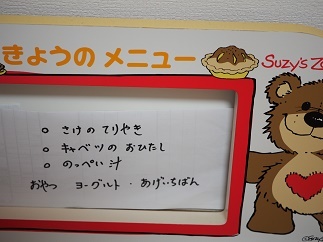 きょうの メニュー
Suzy's Zo
○ さけの てりやき
○ キャベツの おひたし
○ のっぺい汁
おやつ ヨーグルト・あげいちばん